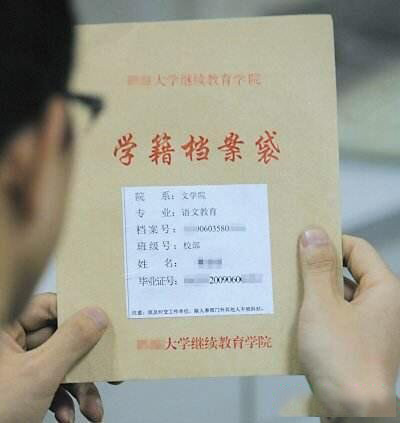 大学继续教育学院
学籍档案袋
院 系：文学院
专 业：语文教育
档案号：00603580
班级号：校部
姓 名：
毕业证号：2009060
大学继续教育学院